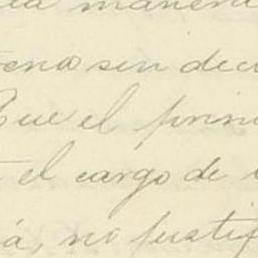 la manera
sin deci
Que el prin
el cargo de
á, no justif